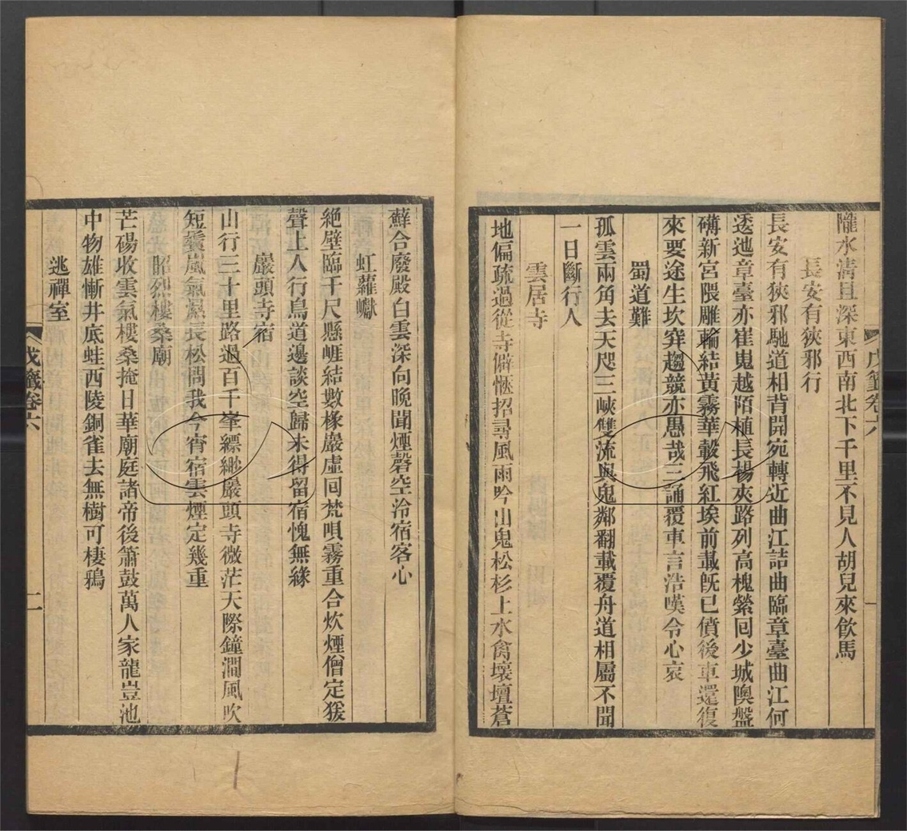 隴水淸且深東西南北下千里不見人胡兒來飲馬
長安有狹邪行
長安有狹邪馳道相背開宛轉近曲江詰曲臨章臺曲江何
逶迤章臺亦崔嵬越陌植長楊夾路列高槐縈囘少城隩盤
礴新宮隈雕輪結黃霧華轂飛紅埃前載旣已僨後車還復
來要途生坎穽趨競亦愚哉三誦覆車言浩嘆令心哀
蜀道難
孤雲兩角去天咫三峽雙流與鬼鄰翻載覆舟道相屬不聞
一日斷行人
雲居寺
地偏疏過從寺僻愜招尋風雨吟山鬼松杉上水禽壞壇蒼
戊籤卷六
一
蘇合廢殿白雲深向晚聞煙磬空泠宿客心
虹蘿巘
絕壁臨千尺懸崕結數椽巖虛囘梵唄霧重合炊煙僧定猨
聲上人行鳥道邊談空歸未得留宿愧無緣
巖頭寺宿
山行三十里路過百千峯縹緲巖頭寺微茫天際鐘澗風吹
短鬢嵐氣濕長松問我今宵宿雲煙定幾重
昭烈樓桑廟
芒碭收雲氣樓桑掩日華廟庭諸帝後簫鼓萬人家龍豈池
中物雄慚井底蛙西陵銅雀去無樹可棲鴉
逃禪室
戊籤卷六
二